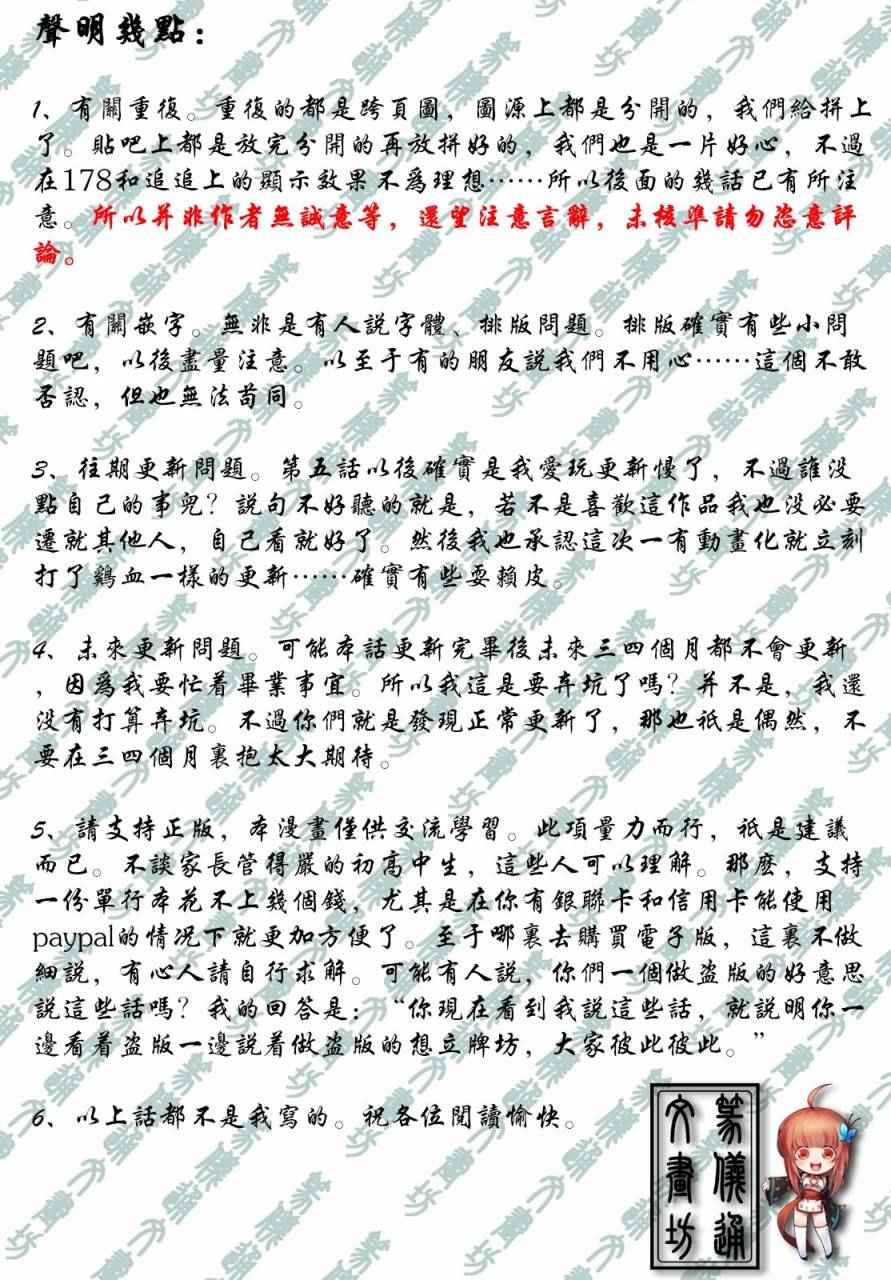 聲明幾點：
1、有關重復。重復的都是跨頁圖，圖源上都是分開的，我們給拼上
了。貼吧上都是放完分開的再放拼好的，我們也是一片好心，不過
在178和追追上的顯示效果不爲理想……所以後面的幾話已有所注
意。所以并非作者無誠意等，還望注意言辭，未核準請勿恣意評
論。
2、有關嵌字。無非是有人說字體、排版問題。排版確實有些小問
題吧，以後盡量注意。以至于有的朋友說我們不用心……這個不敢
否認，但也無法苟同。
3、往期更新問題。第五話以後確實是我愛玩更新慢了，不過誰没
點自己的事兒？說句不好聽的就是，若不是喜歡這作品我也没必要
遷就其他人，自己看就好了。然後我也承認這次一有動畫化就立刻
打了鷄血一樣的更新……確實有些耍賴皮。
4、未來更新問題。可能本話更新完畢後未來三四個月都不會更新
，因爲我要忙着畢業事宜。所以我這是要弃坑了嗎？并不是，我還
没有打算弃坑。不過你們就是發現正常更新了，那也衹是偶然，不
要在三四個月裏抱太大期待。
5、請支持正版，本漫畫僅供交流學習。此項量力而行，衹是建議
而已。不談家長管得嚴的初高中生，這些人可以理解。那麽，支持
一份單行本花不上幾個錢，尤其是在你有銀聯卡和信用卡能使用
paypal的情况下就更加方便了。至于哪裏去購買電子版，這裏不做
細說，有心人請自行求解。可能有人說，你們一個做盗版的好意思
說這些話嗎？我的回答是：“你現在看到我說這些話，就說明你一
邊看着盗版一邊說着做盗版的想立牌坊，大家彼此彼此。”
6、以上話都不是我寫的。祝各位閱讀愉快。
篆儀通
文畫坊